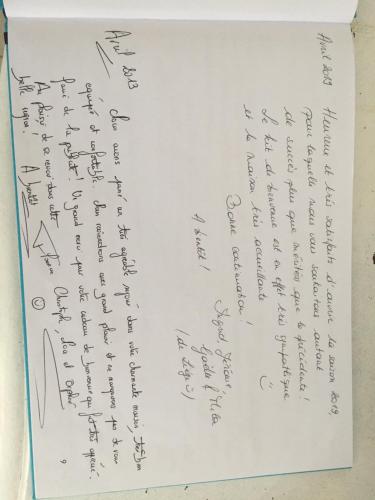 Avril 2019
Heureux et très satisfaits d'ouvrir la saison 2019,
pour laquelle nous vous souhaitons autant
de succès plus que méritées que la précédente !
Le kit de bienvenue est en effet très sympathique
et la maison très accueillante
Bonne continuation !
A bientôt !
Ingrid, Jérôme,
Gaëlle & Mila
(de Liège)
Avril 2019
Nous avons passé un très agréable séjour dans votre charmante maison, très bien
équipée et confortable. Nous reviendrons avec grand plaisir et ne manquerons pas de vous
faire de la publicité ! Un grand merci pour votre cadeau de bienvenue qui fut très apprécié.
Au plaisir de se revoir dans cette
belle région.
A bientôt
Christophe, et Sophie
9